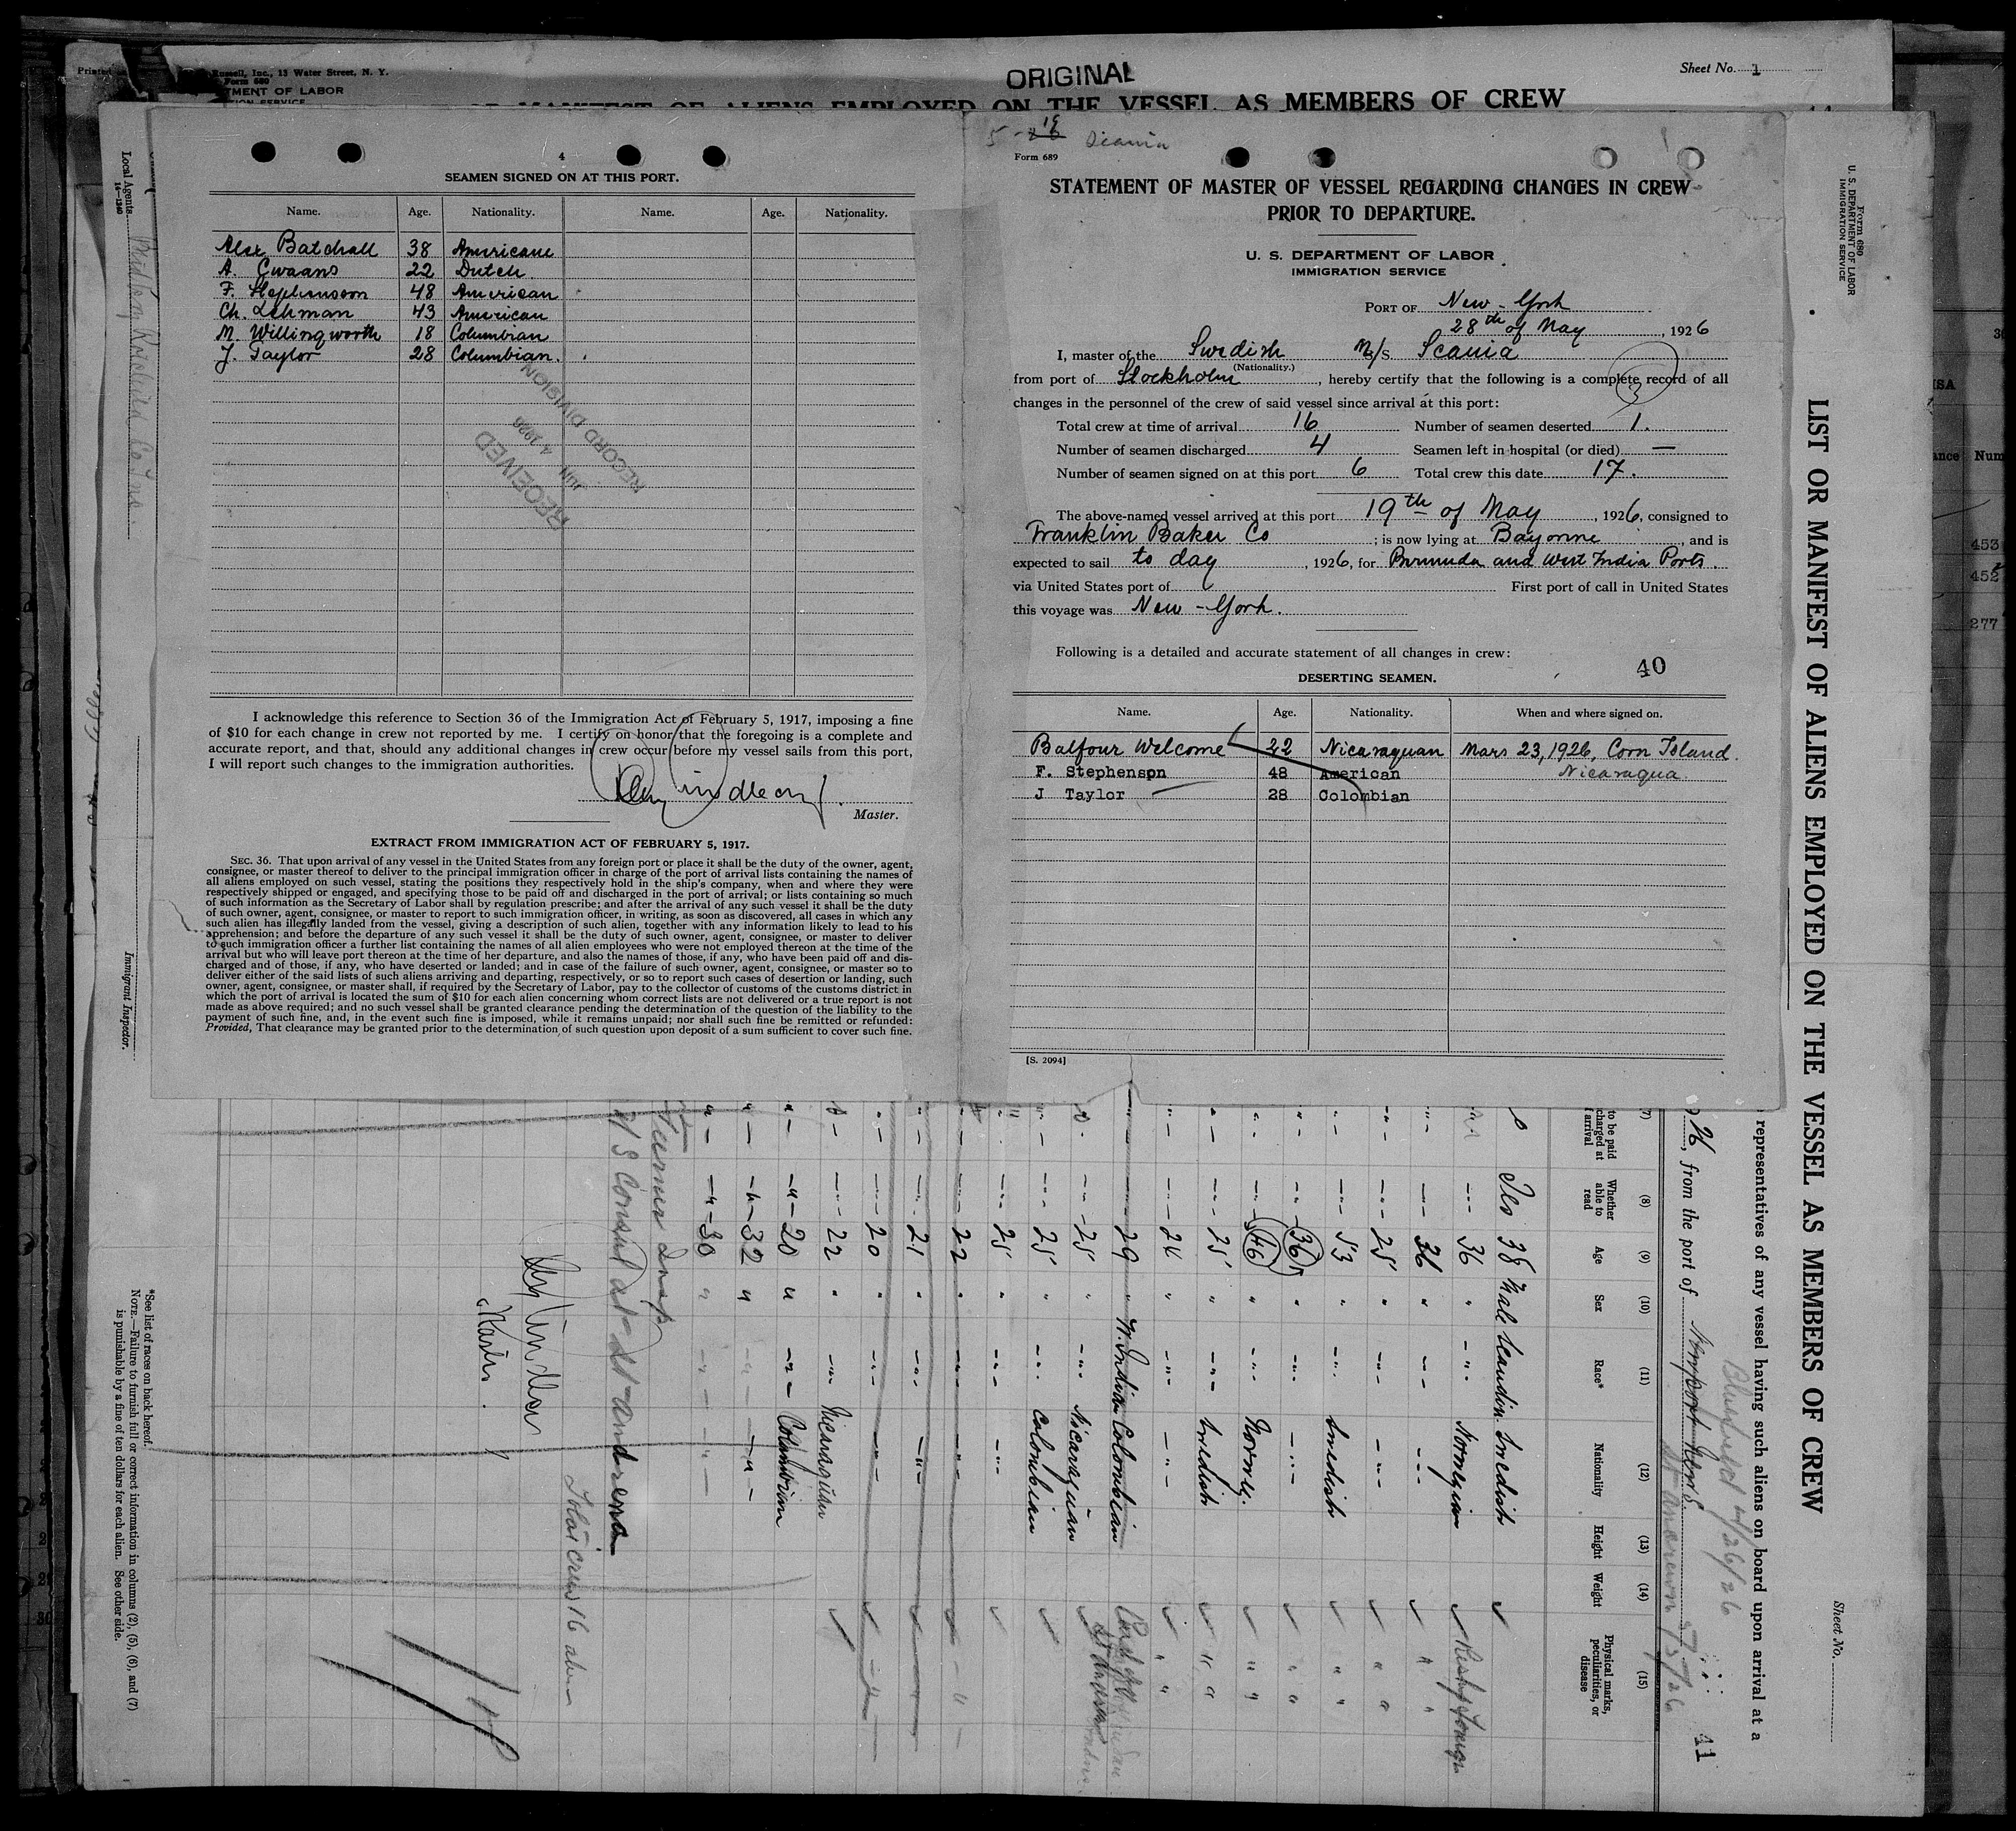 ORIGINAL
Sheet No. 1
Russell, Inc., 13 Water Street, N. Y.
Form 680
MEMBERS OF CREW
4
SEAMEN SIGNED ON AT THIS PORT.
Name. Age. Nationality. Name. Age. Nationality.
Alex Batchall 38 Americane
A. Gwaans 22 Dutch
F. Stephenson 48 American
Ch. Lehman 43 American
M. Willingworth 18 Columbian
J. Taylor 28 Columbian.
RECEIVED
JUN 4 1926
RECORD DIVISION
I acknowledge this reference to Section 36 of the Immigration Act of February 5, 1917, imposing a fine
of $10 for each change in crew not reported by me. I certify on honor that the foregoing is a complete and
accurate report, and that, should any additional changes in crew occur before my vessel sails from this port,
I will report such changes to the immigration authorities.
Master.
EXTRACT FROM IMMIGRATION ACT OF FEBRUARY 5, 1917.
SEC. 36. That upon arrival of any vessel in the United States from any foreign port or place it shall be the duty of the owner, agent,
consignee, or master thereof to deliver to the principal immigration officer in charge of the port of arrival lists containing the names of
all aliens employed on such vessel, stating the positions they respectively hold in the ship's company, when and where they were
respectively shipped or engaged, and specifying those to be paid off and discharged in the port of arrival; or lists containing so much
of such information as the Secretary of Labor shall by regulation prescribe; and after the arrival of any such vessel it shall be the duty
of such owner, agent, consignee, or master to report to such immigration officer, in writing, as soon as discovered, all cases in which any
such alien has illegally landed from the vessel, giving a description of such alien, together with any information likely to lead to his
apprehension; and before the departure of any such vessel it shall be the duty of such owner, agent, consignee, or master to deliver
to such immigration officer a further list containing the names of all alien employees who were not employed thereon at the time of the
arrival but who will leave port thereon at the time of her departure, and also the names of those, if any, who have been paid off and dis-
charged and of those, if any, who have deserted or landed; and in case of the failure of such owner, agent, consignee, or master so to
deliver either of the said lists of such aliens arriving and departing, respectively, or so to report such cases of desertion or landing, such
owner, agent, consignee, or master shall, if required by the Secretary of Labor, pay to the collector of customs of the customs district in
which the port of arrival is located the sum of $10 for each alien concerning whom correct lists are not delivered or a true report is not
made as above required; and no such vessel shall be granted clearance pending the determination of the question of the liability to the
payment of such fine, and, in the event such fine is imposed, while it remains unpaid; nor shall such fine be remitted or refunded:
Provided, That clearance may be granted prior to the determination of such question upon deposit of a sum sufficient to cover such fine.
Scania
Form 689
STATEMENT OF MASTER OF VESSEL REGARDING CHANGES IN CREW
PRIOR TO DEPARTURE.
U. S. DEPARTMENT OF LABOR
IMMIGRATION SERVICE
PORT OF New-York
28th of May, 1926
I, master of the Swedish M/S. Scania
(Nationality.)
from port of Stockholm, hereby certify that the following is a complete record of all
changes in the personnel of the crew of said vessel since arrival at this port:
Total crew at time of arrival 16 Number of seamen deserted 1.
Number of seamen discharged 4 Seamen left in hospital (or died) —
Number of seamen signed on at this port 6 Total crew this date 17.
The above-named vessel arrived at this port 19th of May, 1926, consigned to
Franklin Baker Co; is now lying at Bayonne, and is
expected to sail to day, 1926, for Bermuda and West India Ports.
via United States port of First port of call in United States
this voyage was New-York.
Following is a detailed and accurate statement of all changes in crew:
40
DESERTING SEAMEN.
Name. Age. Nationality. When and where signed on.
Balfour Welcome 22 Nicaraguan Mars 23, 1926, Corn Island
F. Stephenson 48 American Nicaragua.
J Taylor 28 Colombian
[S. 2094]
Form 689
U. S. DEPARTMENT OF LABOR
IMMIGRATION SERVICE
LIST OR MANIFEST OF ALIENS EMPLOYED ON THE VESSEL AS MEMBERS OF CREW
Sheet No.
representatives of any vessel having such aliens on board upon arrival at a
26, from the port of
41
(8) (9) (10) (11) (12) (13) (14) (15)
Whether able to read Age Sex Race* Nationality Height Weight Physical marks, peculiarities, or disease
38 Male Scandin. Swedish
36 Norwegian
36
25
53 Swedish
36
46 Norweg.
25 Swedish
26
29 W. Indian Colombian
25 Nicaraguan
25 Colombian
25
22
21
20
22 Nicaraguan
20 Colombian
32
30
Total crew 16
Master.
*See list of races on back hereof.
NOTE.—Failure to furnish full or correct information in columns (2), (5), (6), and (7)
is punishable by a fine of ten dollars for each alien. See other side.
Local Agents
Immigrant Inspector.